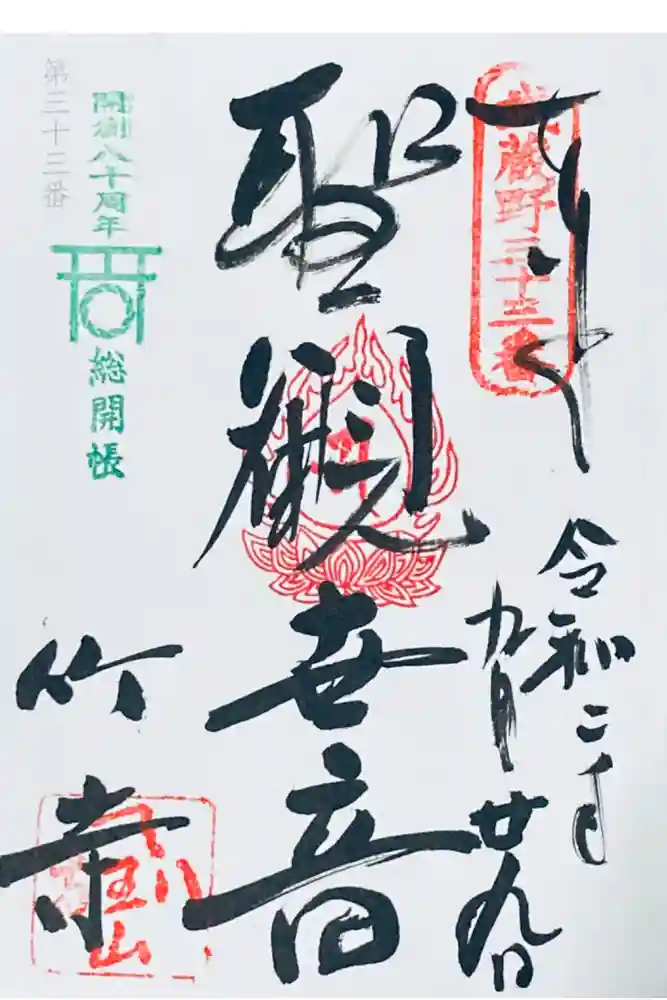 奉拝
武蔵野三十三番
令和二年
九月廿九日
聖觀世音
開創八十周年
総開帳
第三十三番
竹寺